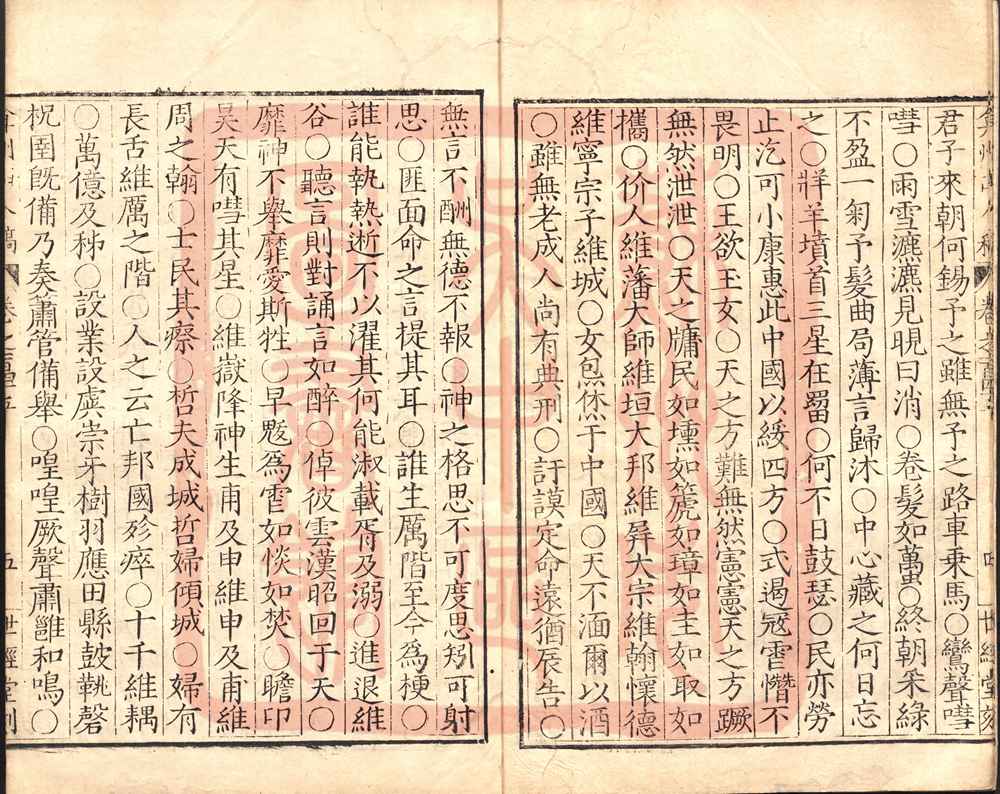 君子來朝何錫予之雖無予之路車乗馬○鸞聲嘒
嘒○雨雪瀌瀌見晛曰消○卷髮如蠆○終朝采綠
不盈一匊予髮曲局薄言歸沐○中心藏之何日忘
之○牂羊墳首三星在罶○何不日鼓瑟○民亦勞
止汔可小康惠此中國以綏四方○式遏寇虐憯不
畏明○王欲玉女○天之方難無然憲憲天之方蹶
無然泄泄○天之牖民如壎如箎如璋如圭如取如
攜○价人維藩大師維垣大邦維屏大宗維翰懷德
維寧宗子維城○女炰烋于中國○天不湎爾以酒
○雖無老成人尚有典刑○訏謨定命遠猶辰告○
無言不酬無德不報○神之格思不可度思矧可射
思○匪面命之言提其耳○誰生厲階至今爲梗○
誰能執熱逝不以濯其何能淑載胥及溺○進退維
谷○聽言則對誦言如醉○倬彼雲漢昭回于天○
靡神不舉靡愛斯牲○旱魃爲虐如惔如焚○瞻卬
昊天有嘒其星○維嶽降神生甫及申維申及甫維
周之翰○士民其瘵○哲夫成城哲婦傾城○婦有
長舌維厲之階○人之云亡邦國殄瘁○十千維耦
○萬億及秭○設業設虡崇牙樹羽應田縣鼓鞉磬
柷圉旣備乃奏蕭管備舉○喤喤厥聲肅雝和鳴○
五 世經堂刻